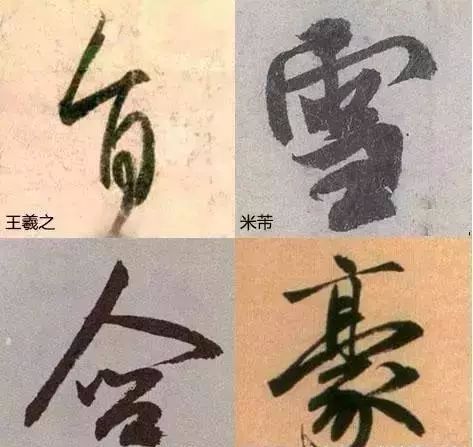 雪
王羲之 米芾
合 豪